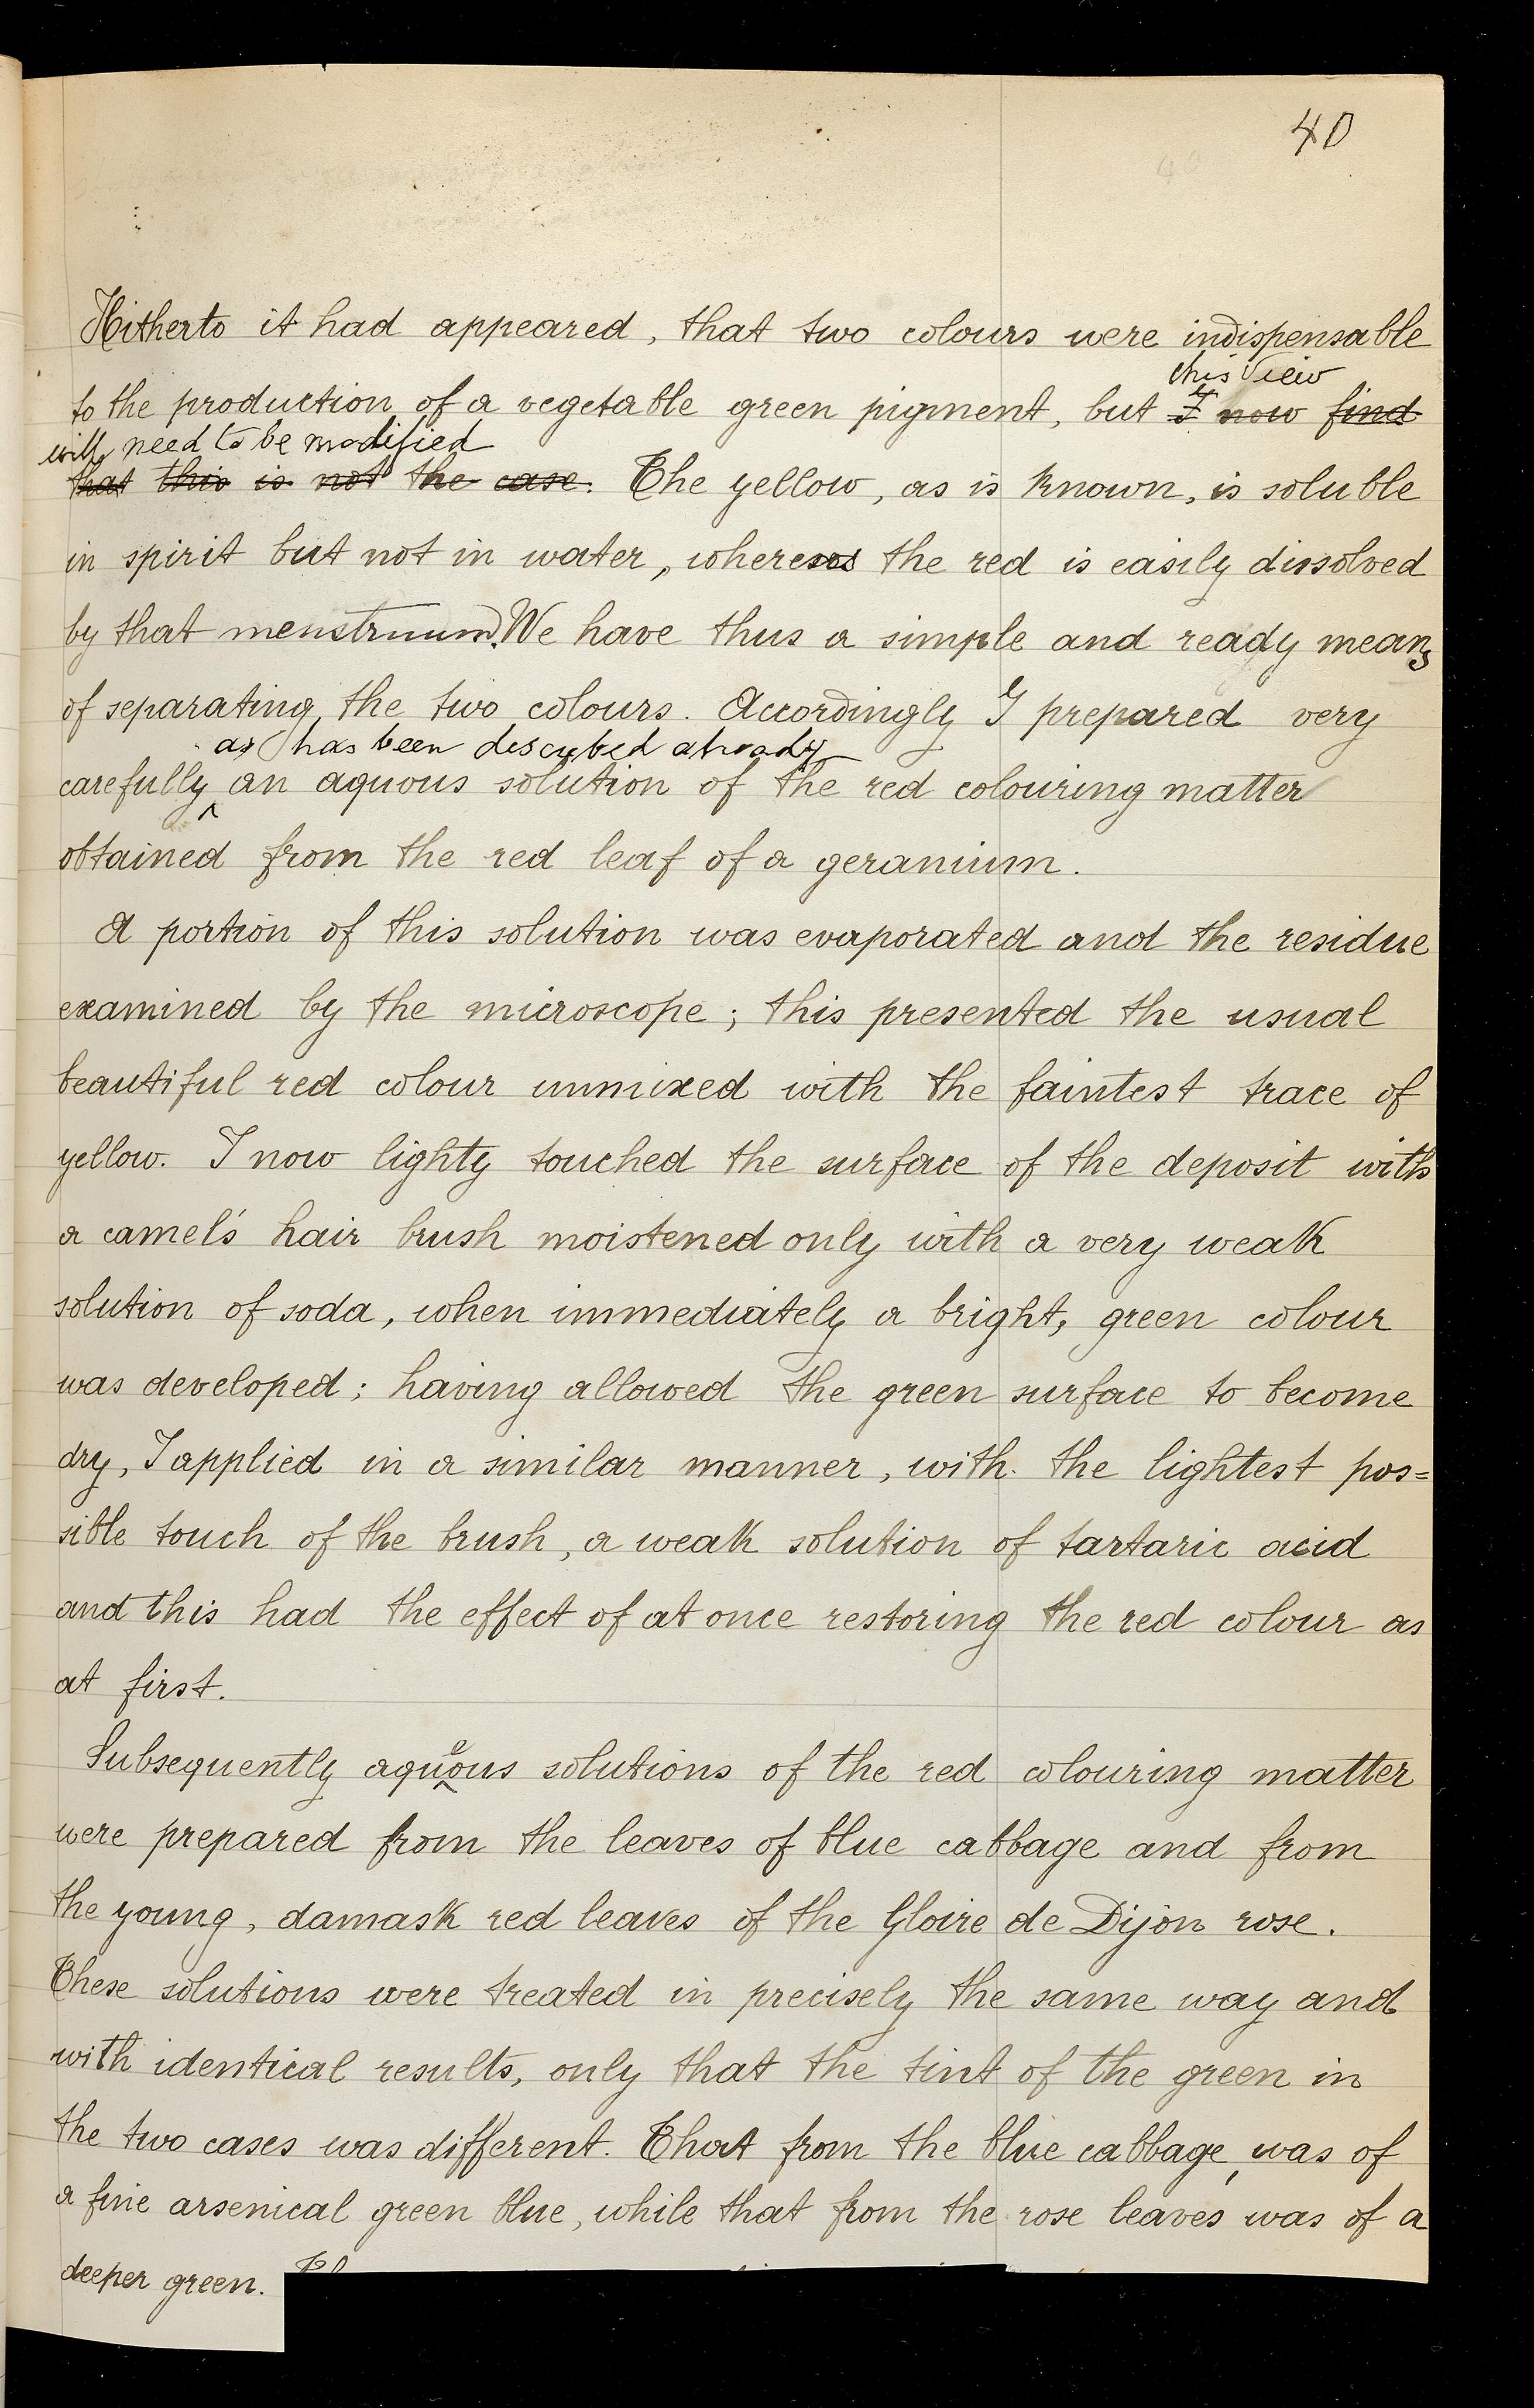 40
Hitherto it had appeared, that two colours were indispensable
this view
to the production of a vegetable green pigment, but I now find
will need to be modified
that this is not the case. The yellow, as is known, is soluble
in spirit but not in water, whereas the red is easily dissolved
by that menstruum. We have thus a simple and ready means
of separating the two colours. Accordingly I prepared very
as has been described already
carefully an aquous solution of the red colouring matter
obtained from the red leaf of a geranium.
A portion of this solution was evaporated and the residue
examined by the microscope; this presented the usual
beautiful red colour unmixed with the faintest trace of
yellow. I now lighty touched the surface of the deposit with
a camel's hair brush moistened only with a very weak
solution of soda, when immediately a bright, green colour
was developed; having allowed the green surface to become
dry, I applied in a similar manner, with the lightest pos=
sible touch of the brush, a weak solution of tartaric acid
and this had the effect of at once restoring the red colour as
at first.
Subsequently aqueous solutions of the red colouring matter
were prepared from the leaves of blue cabbage and from
the young, damask red leaves of the Gloire de Dijon rose.
These solutions were treated in precisely the same way and
with identical results, only that the tint of the green in
the two cases was different. That from the blue cabbage, was of
a fine arsenical green blue, while that from the rose leaves was of a
deeper green.